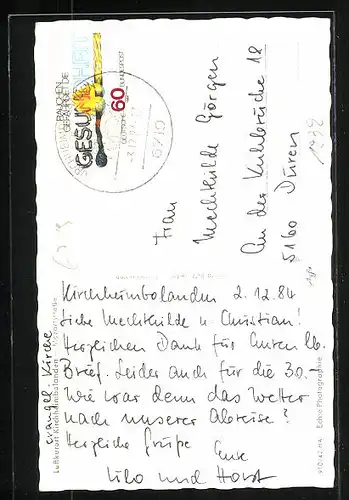 RAUCHEN
GEFÄHRDET DIE
GESUNDHEIT
60
DEUTSCHE BUNDESPOST
6719
Frau
Mechthilde Görgen
An der Kuhbrücke 12
5160 Düren
Kirchheimbolanden 2.12.84
Liebe Mechthilde u. Christian!
Herzlichen Dank für Euren lb.
Brief. Leider auch für die 30.-
Wie war denn das Wetter
nach unserer Abreise?
Herzliche Grüße
Eure
Lilo und Horst
evangel. Kirche
Luftkurort Kirchheimbolanden
Echte Photographie